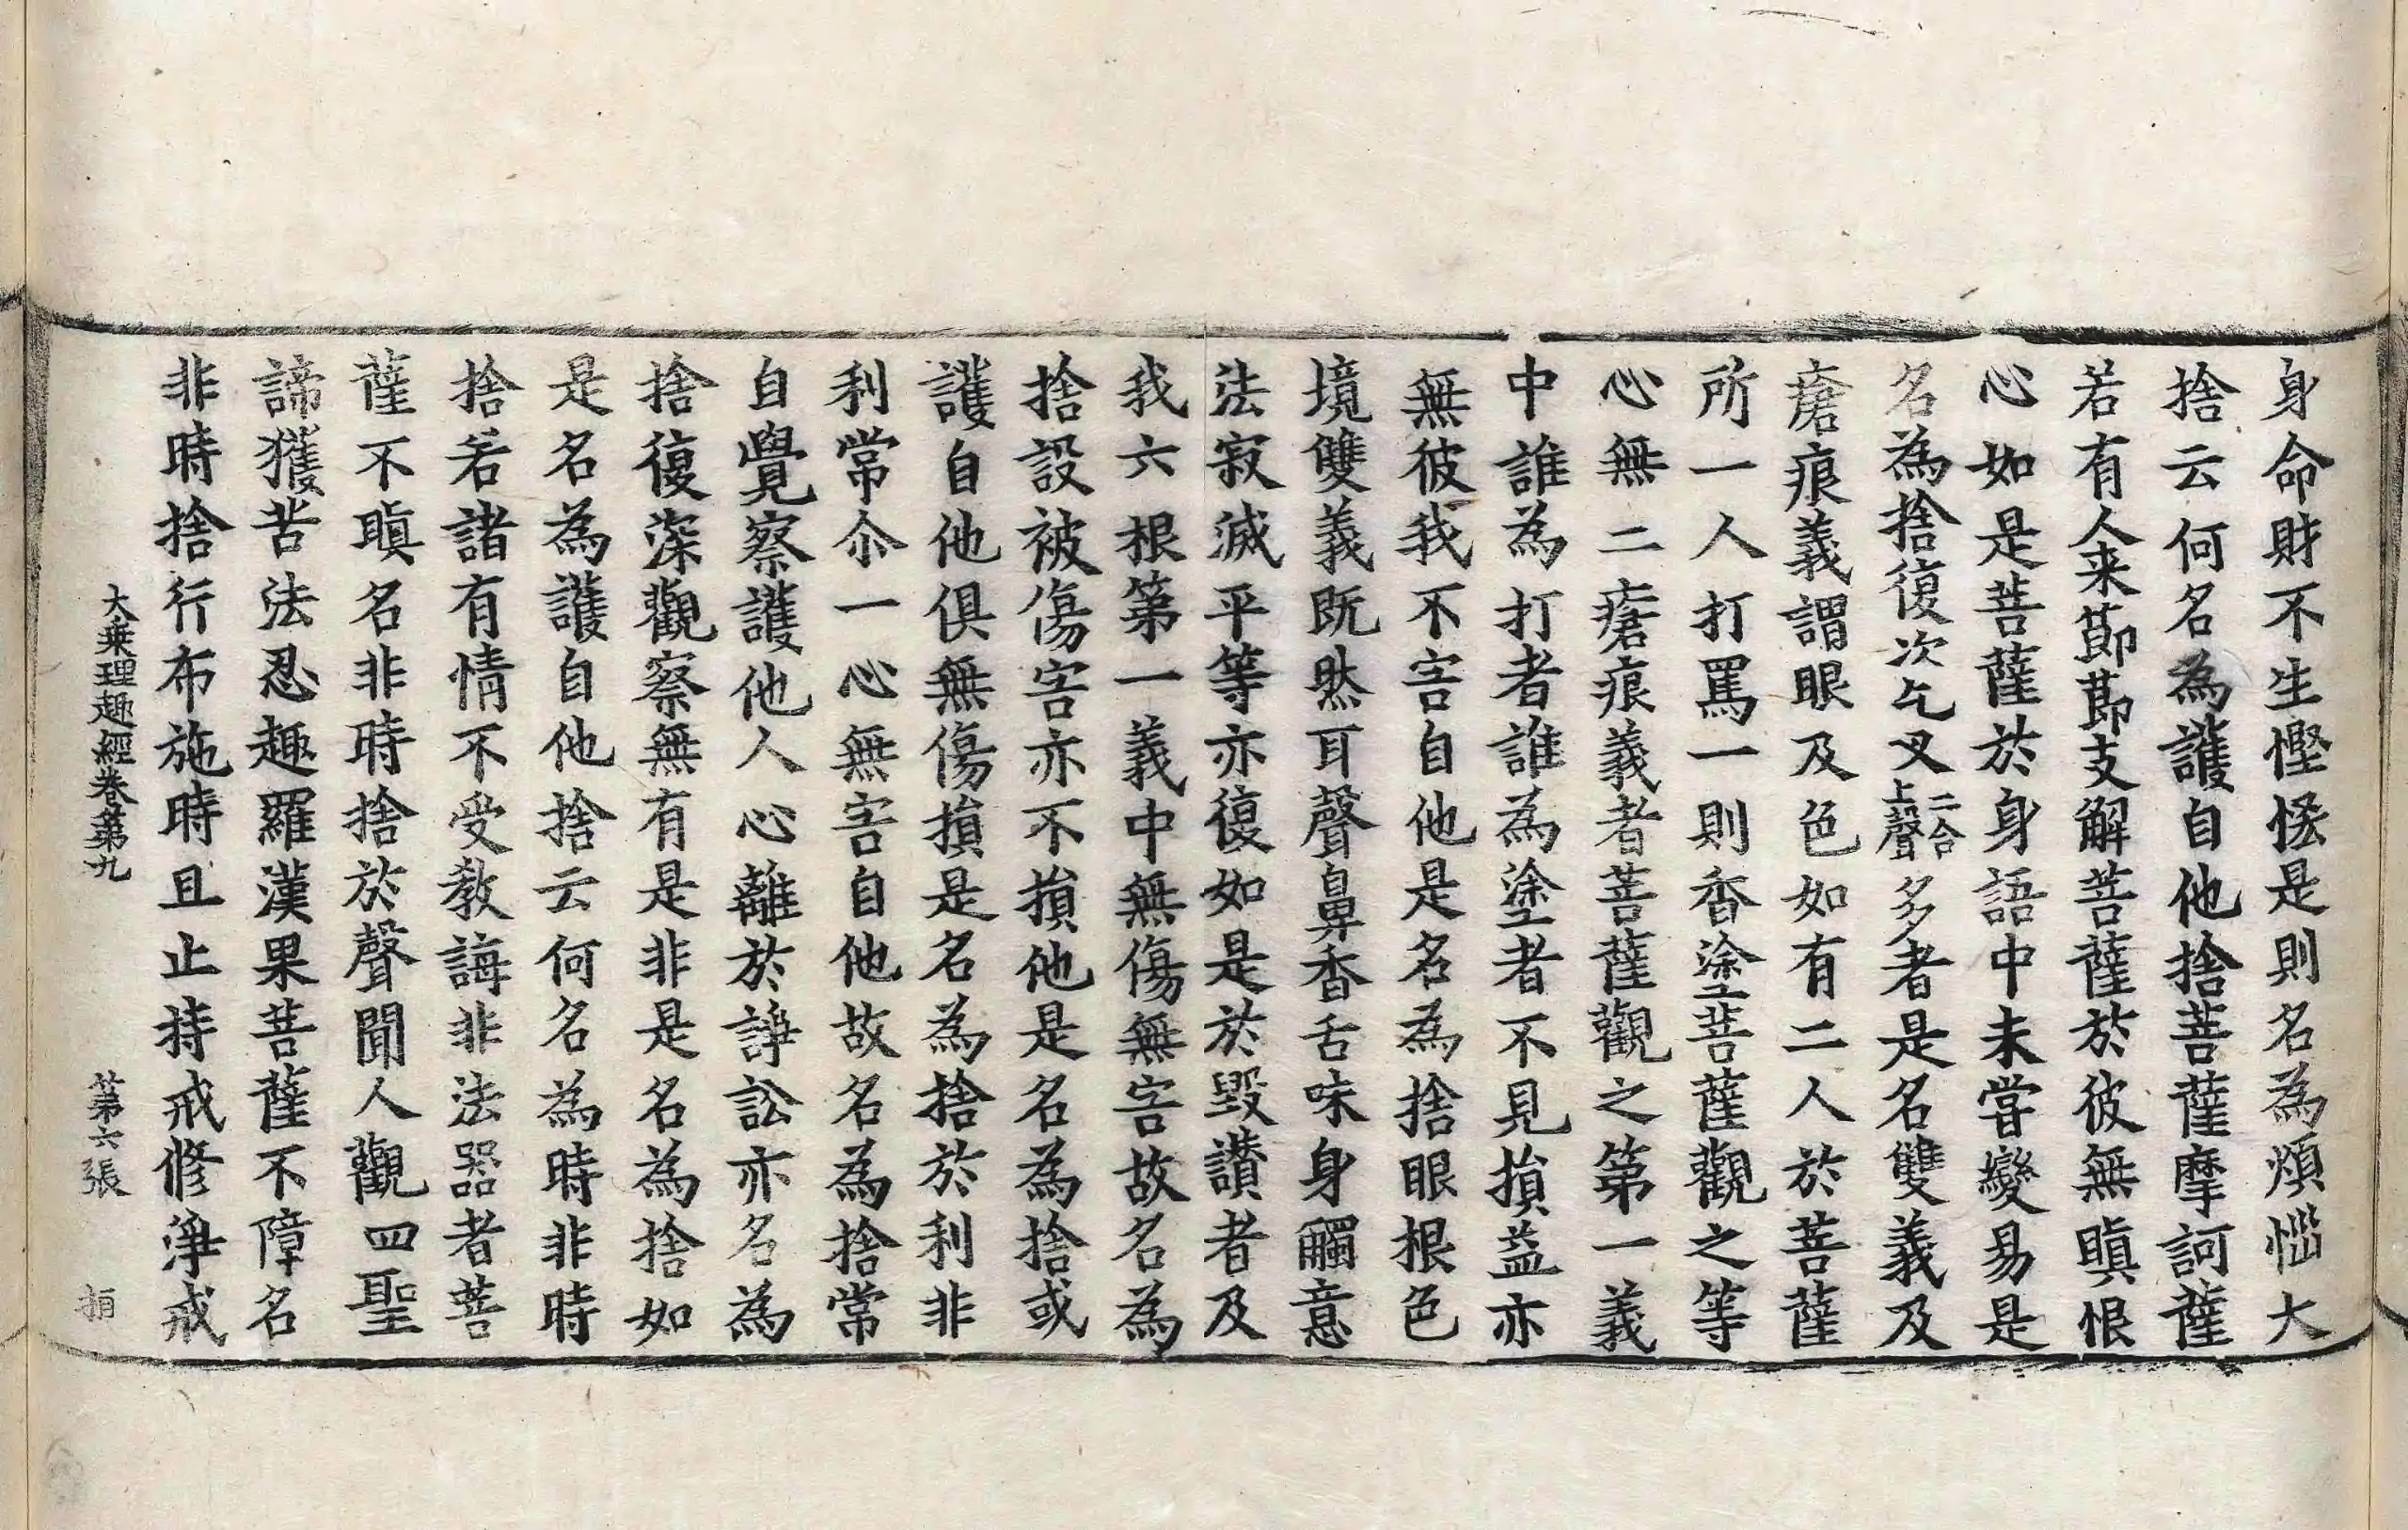 身命財不生慳悋是則名為煩惱大
捨云何名為護自他捨菩薩摩訶薩
若有人来節節支解菩薩於彼無瞋恨
心如是菩薩於身語中未甞變易是
名為捨復次乞叉二合上聲多者是名雙義及
瘡痕義謂眼及色如有二人於菩薩
所一人打罵一則香塗菩薩觀之等
心無二瘡痕義者菩薩觀之第一義
中誰為打者誰為塗者不見損益亦
無彼我不害自他是名為捨眼根色
境雙義既然耳聲鼻香舌味身觸意
法寂滅平等亦復如是於毀讃者及
我六根第一義中無傷無害故名為
捨設被傷害亦不損他是名為捨或
護自他俱無傷損是名為捨於利非
利常尒一心無害自他故名為捨常
自覺察護他人心離於諍訟亦名為
捨復深觀察無有是非是名為捨如
是名為護自他捨云何名為時非時
捨若諸有情不受教誨非法器者菩
薩不瞋名非時捨於聲聞人觀四聖
諦獲苦法忍趣羅漢果菩薩不障名
非時捨行布施時且止持戒修淨戒
大乗理趣經卷第九 第六張